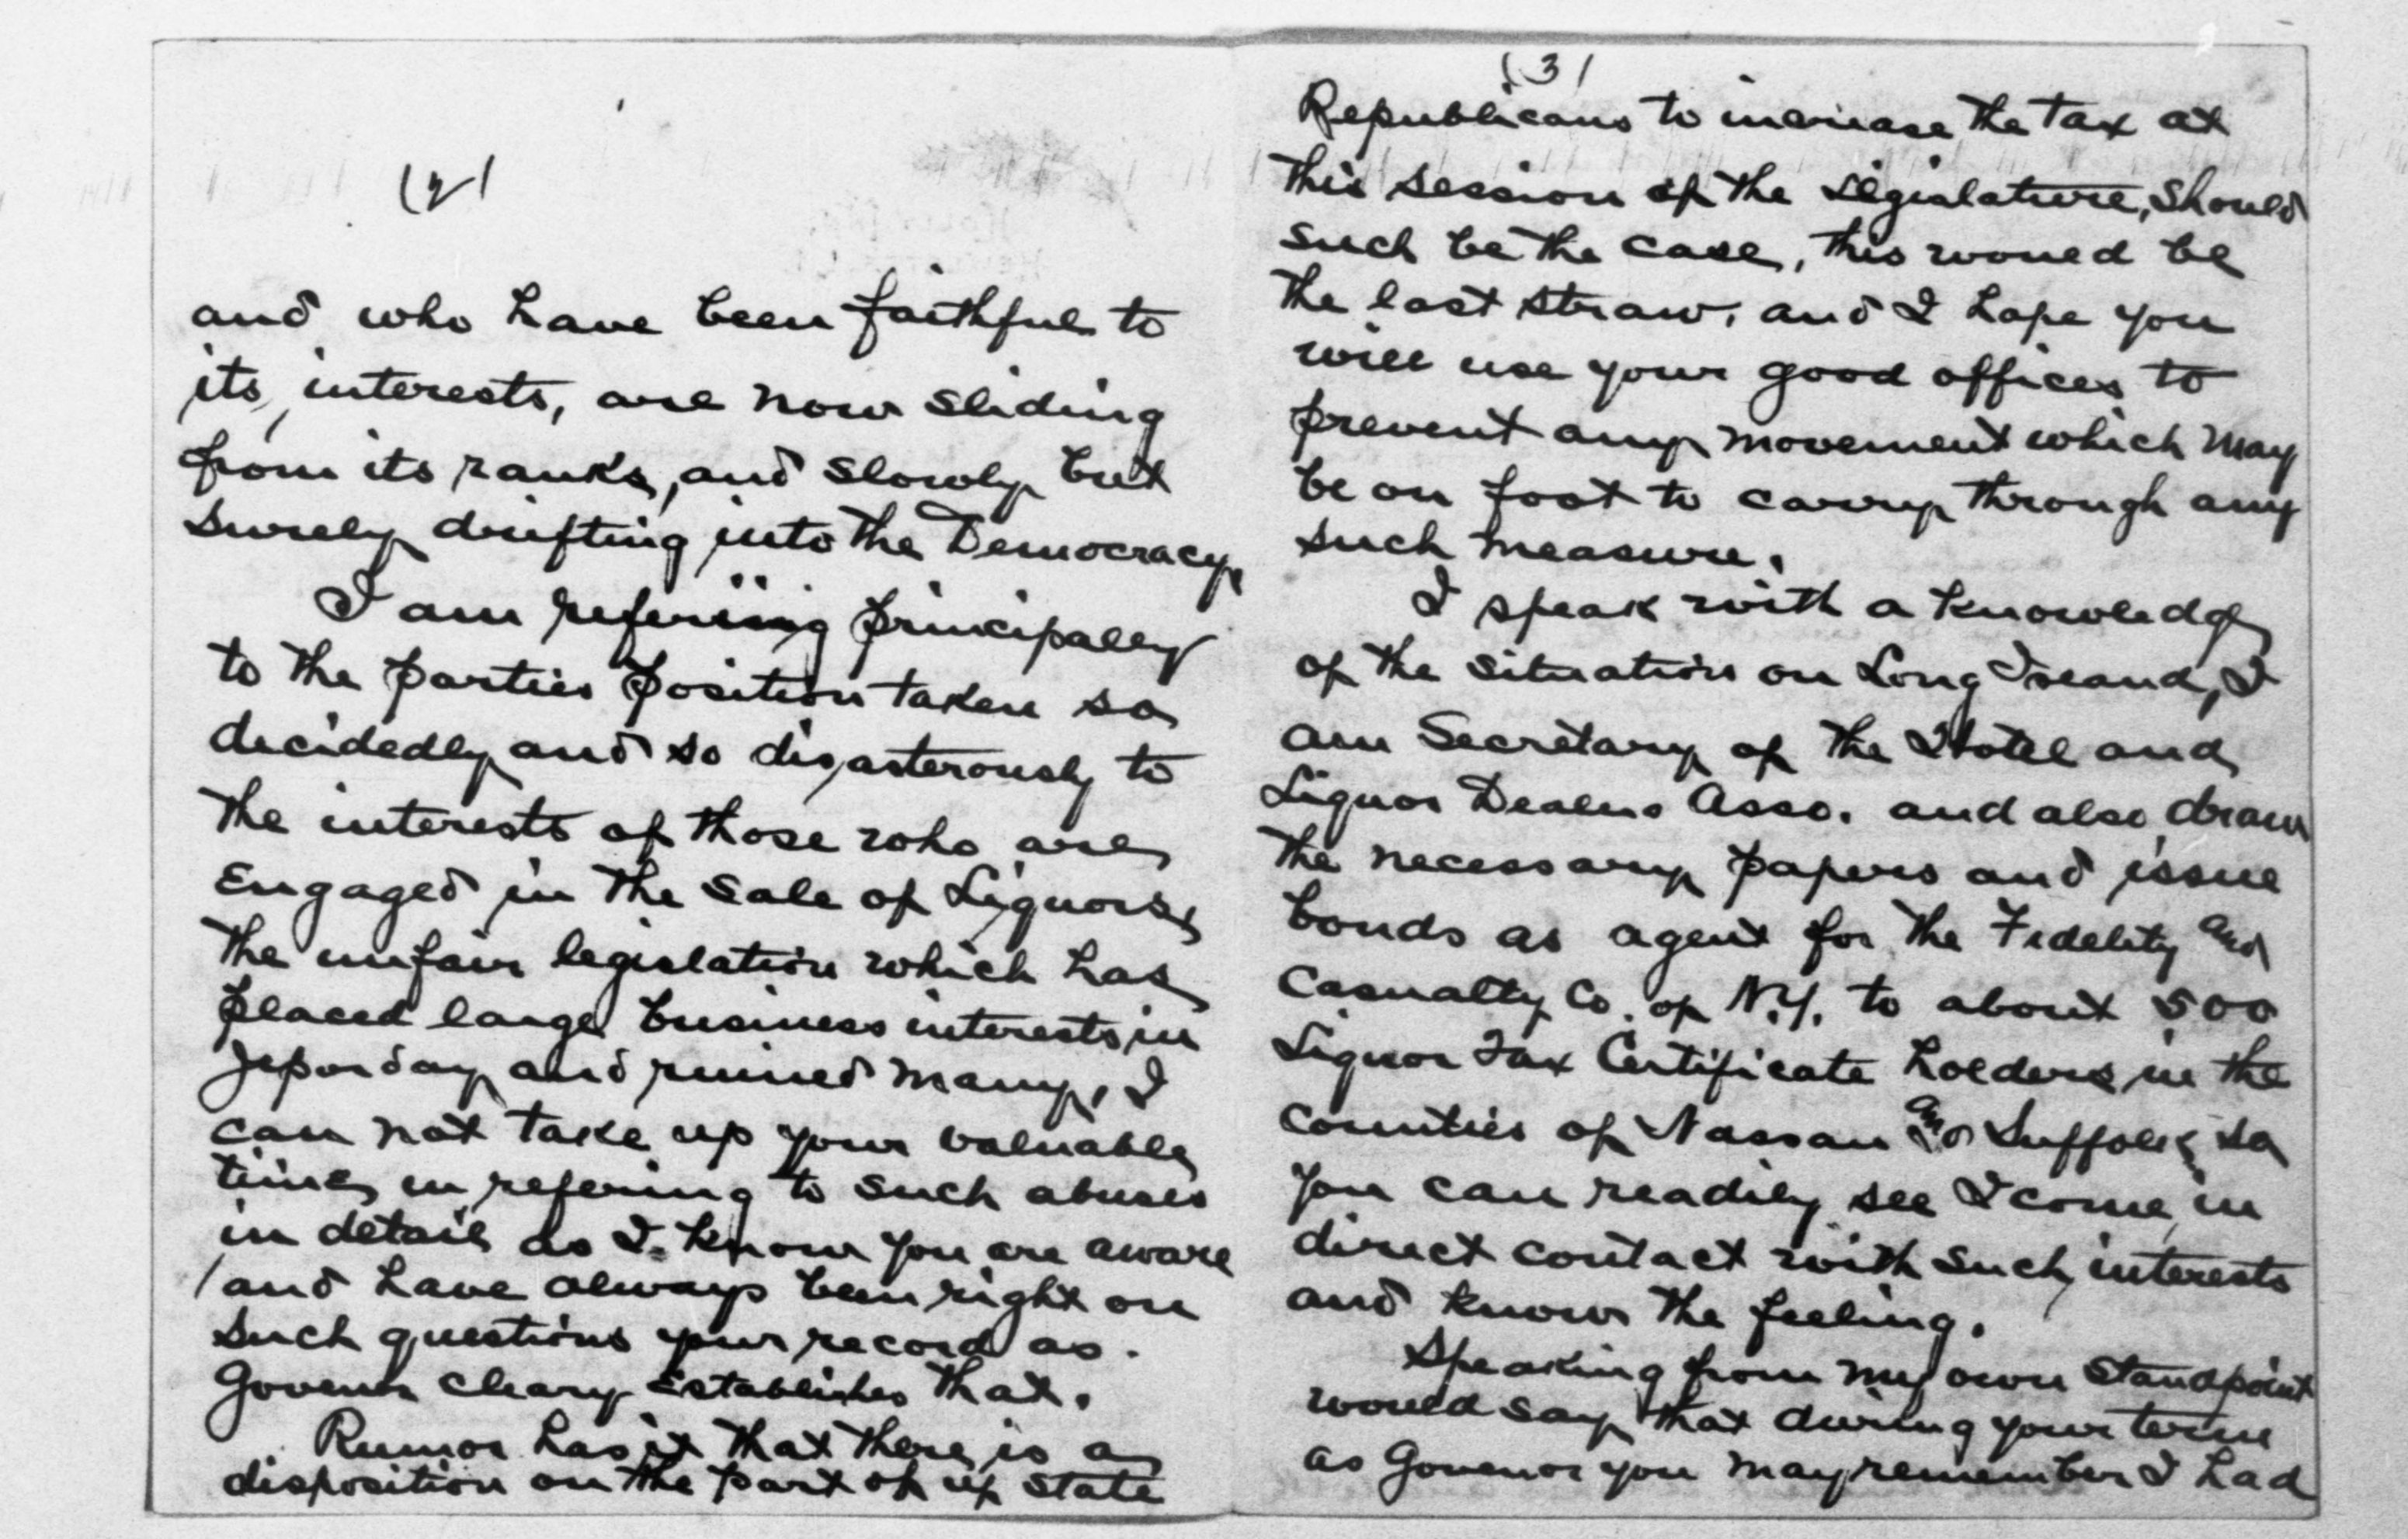 (2)
and who have been faithful to
its interests, are now sliding
from its ranks, and slowly but
surely drifting into the Democracy,
I am refering principally
to the parties position taken so
decidedly and so disasterously to
the interests of those who are
Engaged in the sale of Liquors,
the unfair legislation which has
placed large business interests in
jeporday and ruined many, I
can not take up your valuable
time in refering to such abuses
in detail as I know you are aware
and have always been right on
such questions your record as
Govenor cleary Establishes that.
Rumor has it that there is a
disposition on the part of up state
(3)
Republicans to increase the tax at
this session of the Legislature, should
such be the case, this would be
the last straw, and I hope you
will use your good offices to
prevent any movement which may
be on foot to carry through any
such measure.
I speak with a knowledge
of the situation on Long Island, I
am Secretary of the Hotel and
Liquor Dealers Asso. and also draw
the necessary papers and issue
bonds as agent for the Fidelity and
Casualty Co. of N.Y. to about 500
Liquor Tax Certificate holders in the
counties of Nassau and Suffolk so
you can readily see I come in
direct contact with such interests
and know the feeling.
Speaking from my own standpoint
would say that during your term
as Govenor you may remember I had